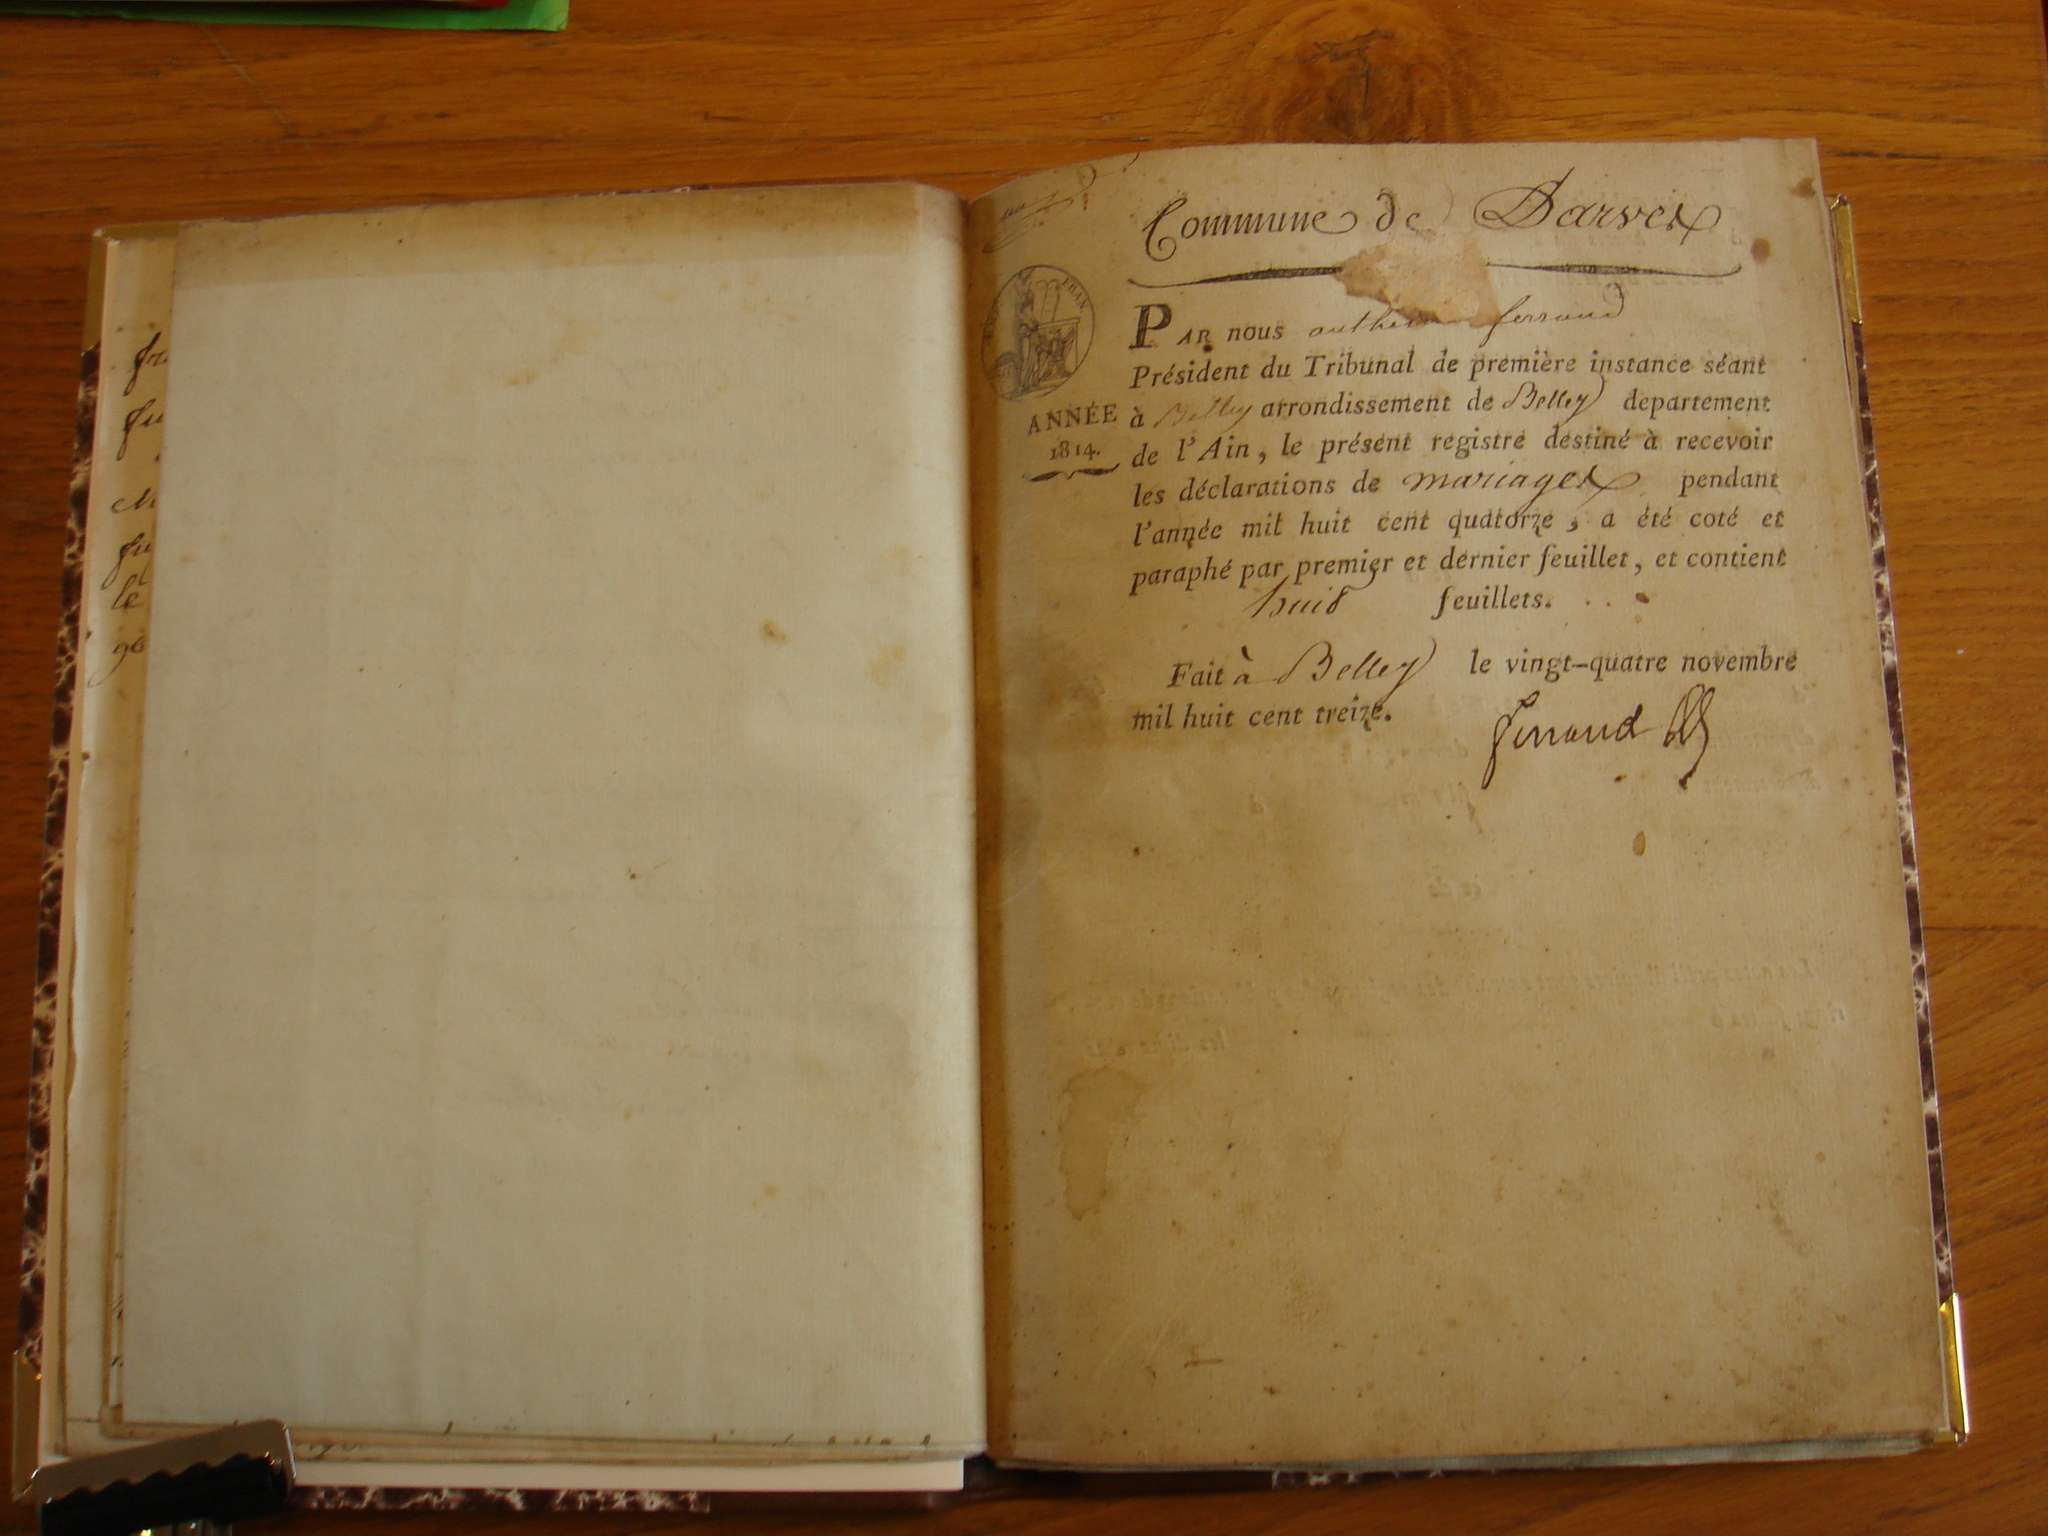 Commune de Darvex
FRAN
PAR nous anthelme ferrand
Président du Tribunal de première instance séant
à Belley arrondissement de Belley departement
de l'Ain, le présent registre destiné à recevoir
les déclarations de mariages pendant
l'année mil huit cent quatorze, a été coté et
paraphé par premier et dernier feuillet, et contient
huit feuillets.
Fait à Belley le vingt-quatre novembre
mil huit cent treize.
ferrand
ANNÉE
1814.
le